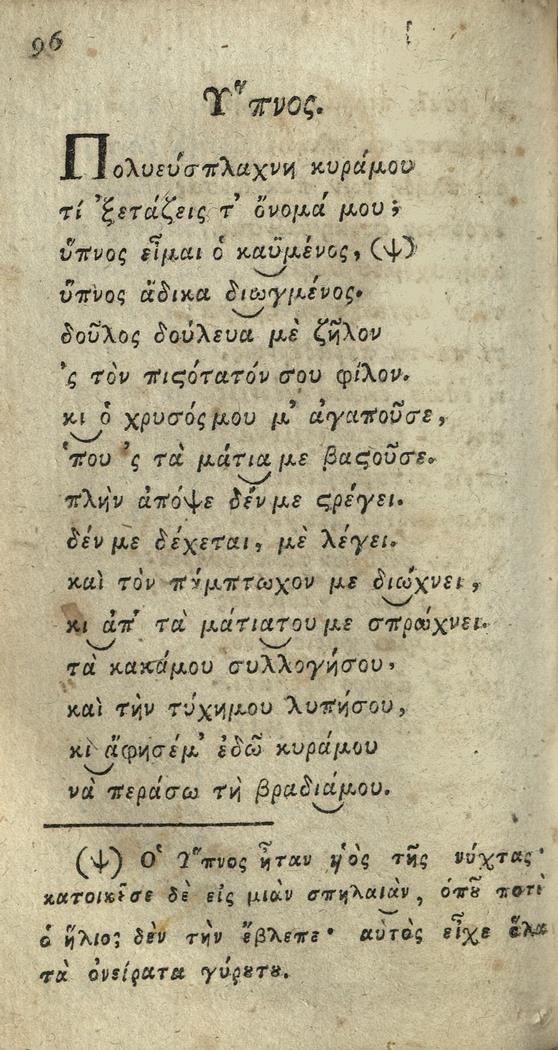 96
Ὕπνος.
Πολυεύσπλαχνη κυράμου
τί ᾿ξετάζεις τ᾿ ὄνομά μου;
ὕπνος εἶμαι ὁ καϋμένος, (ψ)
ὕπνος ἄδικα διωγμένος.
δοῦλος δούλευα μὲ ζῆλον
᾿ς τὸν πιϛότατόν σου φίλον.
κι ὁ χρυσός μου μ᾿ ἀγαποῦσε,
᾿που ᾿ς τὰ μάτια με βαϛοῦσε.
πλὴν ἀπόψε δέν με ϛρέγει.
δέν με δέχεται, μὲ λέγει.
καὶ τὸν πάμπτωχον με διώχνει,
κι ἀπ᾿ τὰ μάτιατου με σπρώχνει.
τὰ κακάμου συλλογήσου,
καὶ τὴν τύχημου λυπήσου,
κι ἄφησέμ᾿ ἐδῶ κυράμου
νὰ περάσω τὴ βραδιάμου.
(ψ) Ὁ Ὕπνος ἦταν ὑιὸς τῆς νύχτας·
κατοικοῦσε δὲ εἰς μιὰν σπηλαιὰν, ὁποῦ ποτὲ
ὁ ἥλιος δὲν τὴν ἔβλεπε· αὐτὸς εἶχε ὅλα
τὰ ὀνείρατα γύρȣτȣ.